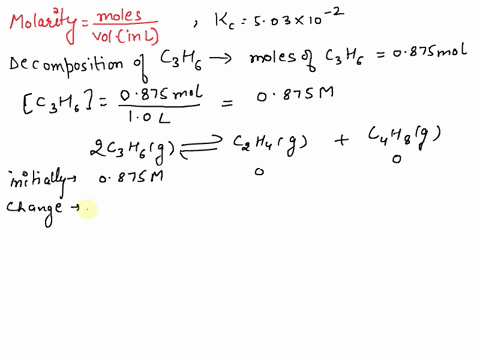 Molarity = moles / vol·(in L) , Kc = 5.03×10⁻²
Decomposition of C₃H₆ → moles of C₃H₆ = 0.875 mol
[C₃H₆] = 0.875 mol / 1.0 L = 0.875 M
2C₃H₆(g) ⇌ C₂H₄(g) + C₄H₈(g)
initially → 0.875 M 0 0
Change →